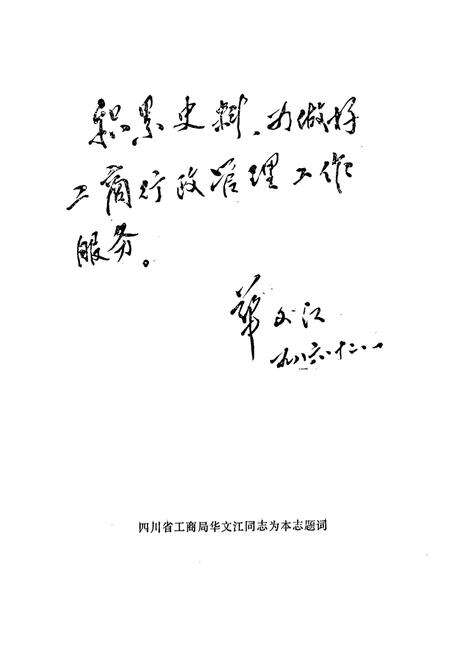 积累史料、为做好
工商行政管理工作
服务。
华文江
一九八六·十二·一
四川省工商局华文江同志为本志题词